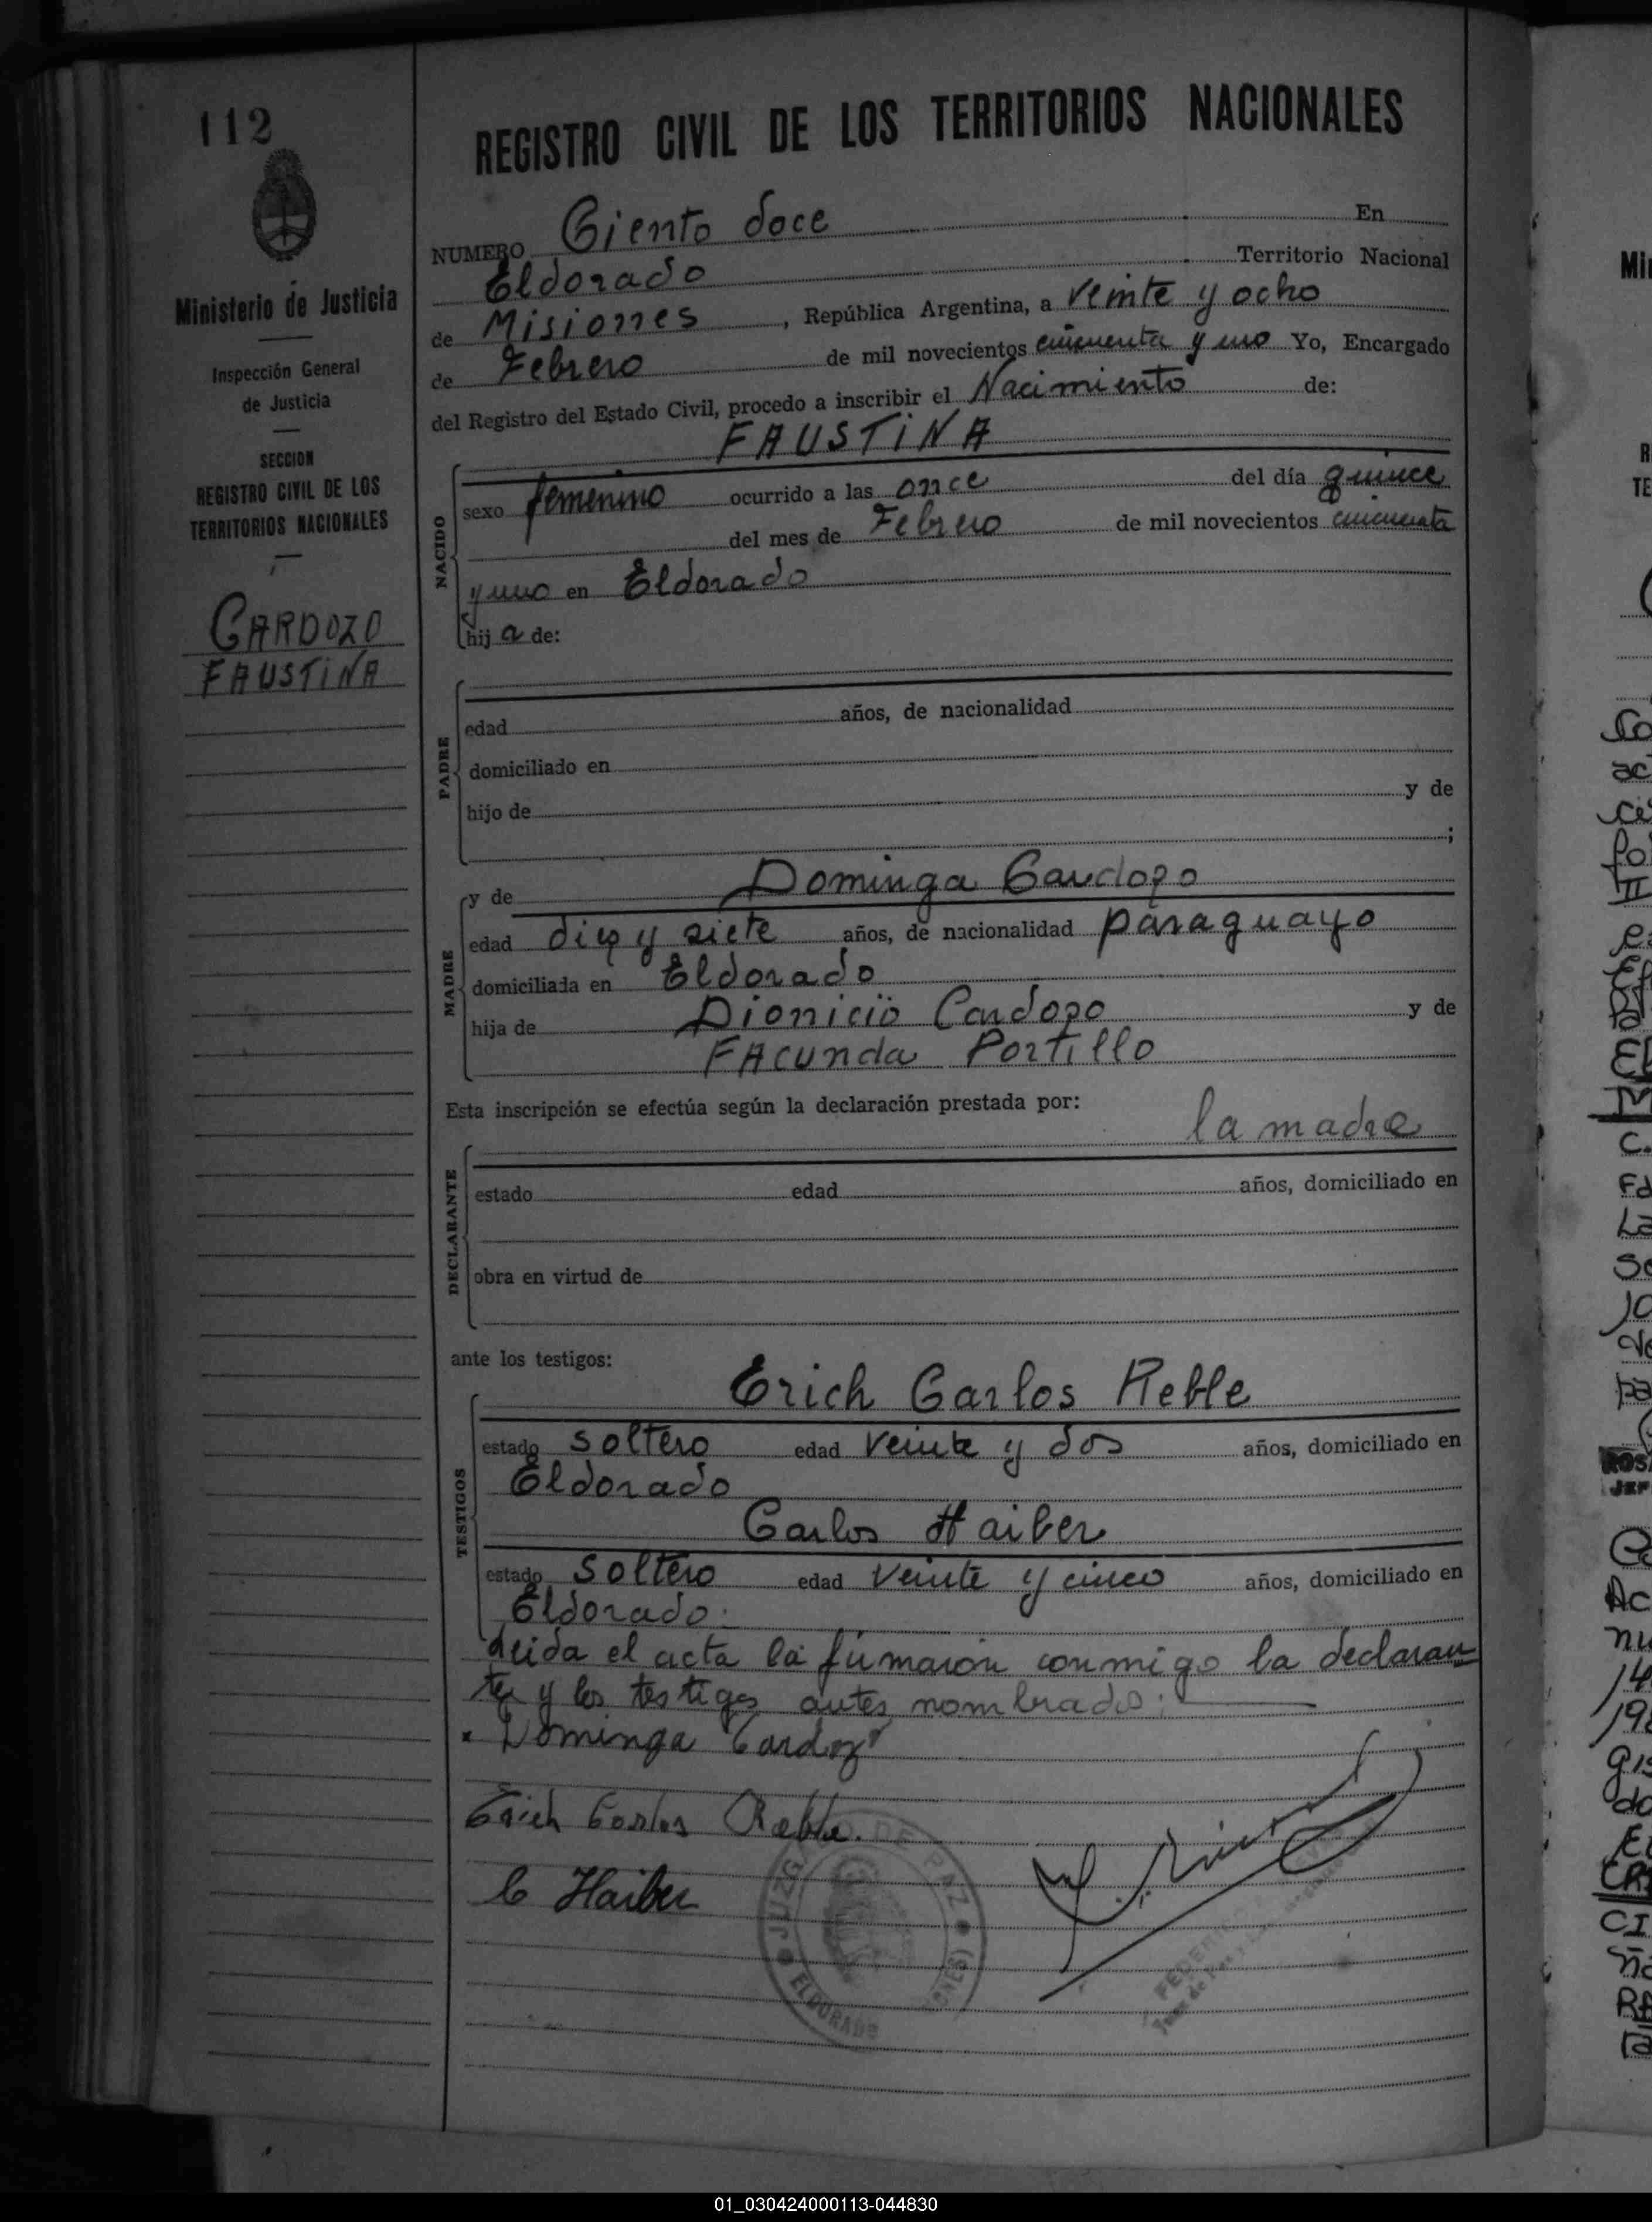 112
Ministerio de Justicia
Inspección General
de Justicia
SECCION
REGISTRO CIVIL DE LOS
TERRITORIOS NACIONALES
CARDOZO
FAUSTINA
REGISTRO CIVIL DE LOS TERRITORIOS NACIONALES
NUMERO Ciento doce En
Eldorado Territorio Nacional
de Misiones, República Argentina, a veinte y ocho
de Febrero de mil novecientos cincuenta y uno Yo, Encargado
del Registro del Estado Civil, procedo a inscribir el Nacimiento de:
FAUSTINA
NACIDO
sexo femenino ocurrido a las once del día quince
del mes de Febrero de mil novecientos cincuenta
y uno en Eldorado
hij a de:
PADRE
edad años, de nacionalidad
domiciliado en
hijo de y de
;
MADRE
y de Dominga Cardozo
edad diez y siete años, de nacionalidad paraguayo
domiciliada en Eldorado
hija de Dionicio Cardozo y de
FACUnda Portillo
Esta inscripción se efectúa según la declaración prestada por:
la madre
DECLARANTE
estado edad años, domiciliado en
obra en virtud de
ante los testigos:
TESTIGOS
Erich Carlos Reble
estado soltero edad veinte y dos años, domiciliado en
Eldorado
Carlos Haiber
estado soltero edad veinte y cinco años, domiciliado en
Eldorado.
Leida el acta la firmaron conmigo la declaran
te y los testigos antes nombrados:
Dominga Cardozo
Erich Carlos Reble.
C Haiber
JUZGADO DE PAZ
ELDORADO
01_030424000113-044830